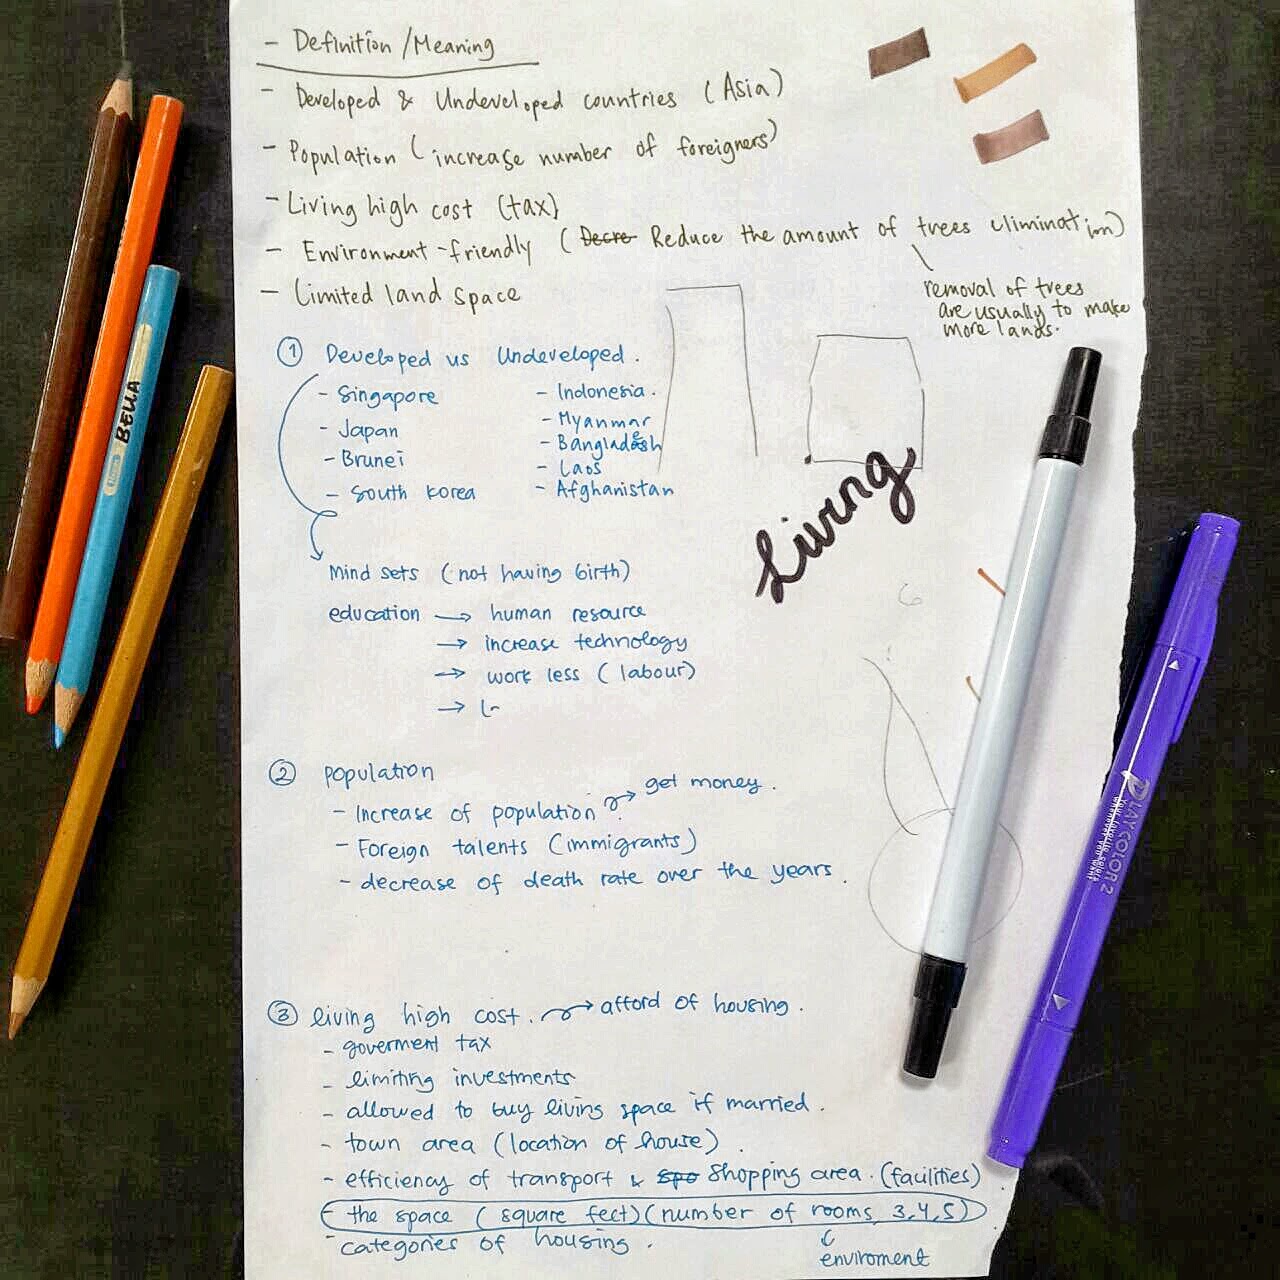 - Definition/Meaning
- Developed & Undeveloped countries (Asia)
- Population (increase number of foreigners)
- Living high cost (tax)
- Environment-friendly (Decre Reduce the amount of trees elimination)
removal of trees
are usually to make
more lands.
- Limited land space
① Developed vs Undeveloped.
- Singapore
- Japan
- Brunei
- South Korea
- Indonesia.
- Myanmar
- Bangladesh
- Laos
- Afghanistan
Living
Mind sets (not having birth)
education → human resource
→ increase technology
→ work less (labour)
→
② population
- Increase of population → get money.
- Foreign talents (immigrants)
- decrease of death rate over the years.
③ living high cost. → afford of housing.
- goverment tax
- limiting investments
- allowed to buy living space if married.
- town area (location of house)
- efficiency of transport & Spo Shopping area. (facilities)
- the space (square feet)(number of rooms, 3,4,5)
- categories of housing.
enviroment
BELLA
PLAYCOLOR 2